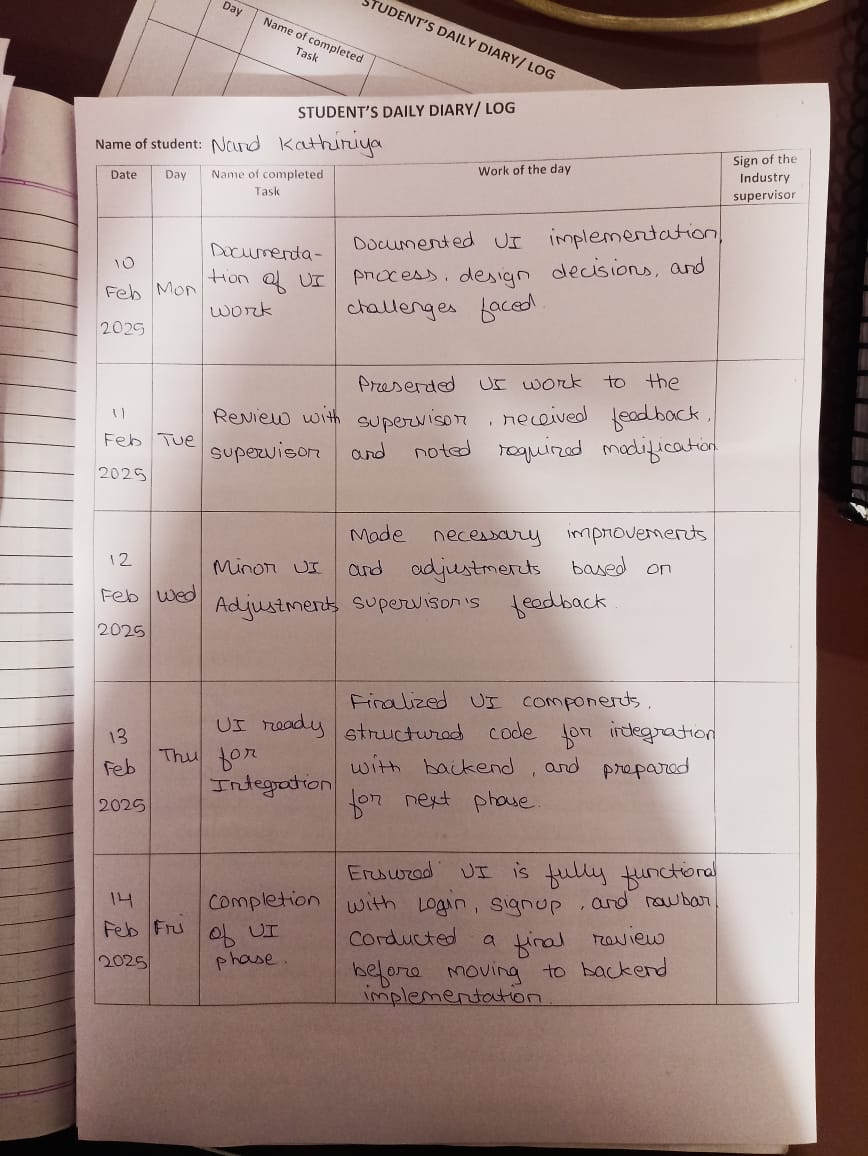 Day
Name of completed
Task
STUDENT'S DAILY DIARY/ LOG
STUDENT'S DAILY DIARY/ LOG
Name of student: Nand Kathiriya
Date
Day
Name of completed
Task
Work of the day
Sign of the
Industry
supervisor
10
Feb
2025
Mon
Documenta-
tion of UI
work
Documented UI implementation
process, design decisions, and
challenges faced.
11
Feb
2025
Tue
Review with
supervisor
Presented UI work to the
supervisor, received feedback,
and noted required modification
12
Feb
2025
Wed
Minor UI
Adjustments
Made necessary improvements
and adjustments based on
supervisor's feedback.
13
Feb
2025
Thu
UI ready
for
Integration
Finalized UI components,
structured code for integration
with backend, and prepared
for next phase.
14
Feb
2025
Fri
Completion
of UI
phase.
Ensured UI is fully functional
with Login, Signup, and navbar.
Conducted a final review
before moving to backend
implementation.